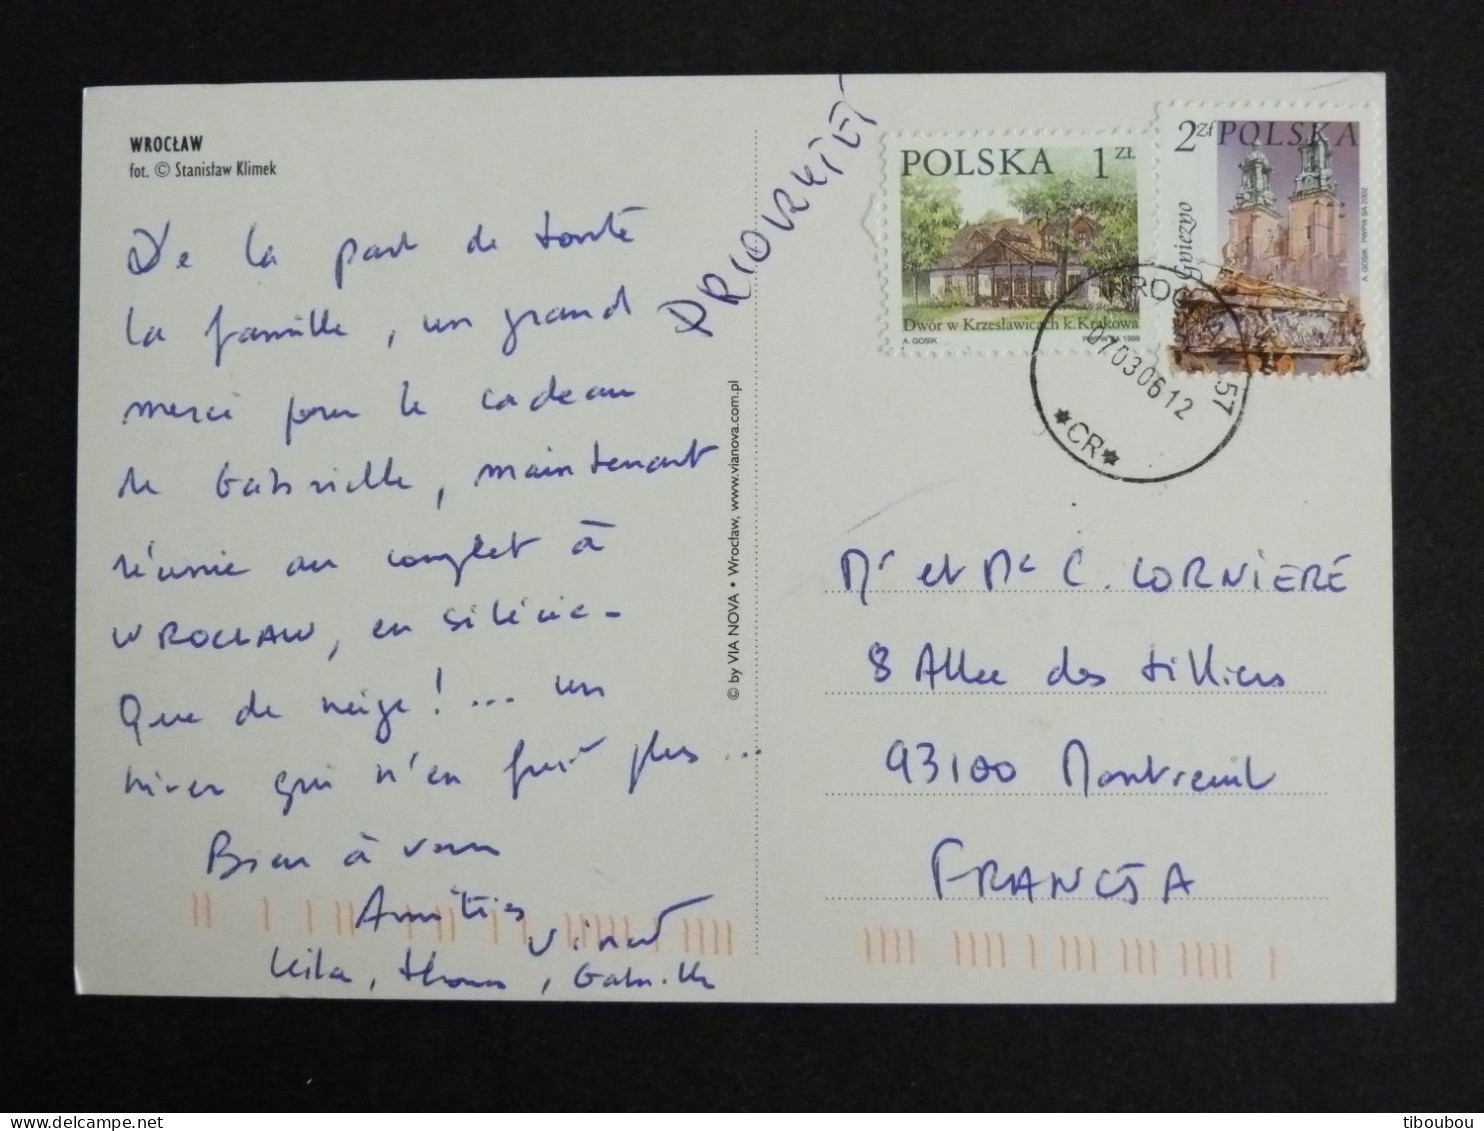 WROCŁAW
fot. © Stanisław Klimek
De la part de toute
la famille, un grand
merci pour le cadeau
de Gabrielle, maintenant
réunie au complet à
WROCŁAW, en silésie -
Que de neige! ... un
hiver qui n'en finit plus ...
Bien à vous
Amitiés
Vincent
Leila, Thomas, Gabrielle
© by VIA NOVA • Wrocław, www.vianova.com.pl
PRIORYTET
POLSKA 1 ZŁ
Dwór w Krzesławicach k. Krakowa
A. GOSIK PWPW SA 1999
2 Zł POLSKA
Gniezno
A. GOSIK PWPW SA 2002
WROCŁAW 57
07.03.06.12
*CR*
Mr et Me C. CORNIERE
8 Allee des tilliers
93100 Montreuil
FRANCJA
tiboubou